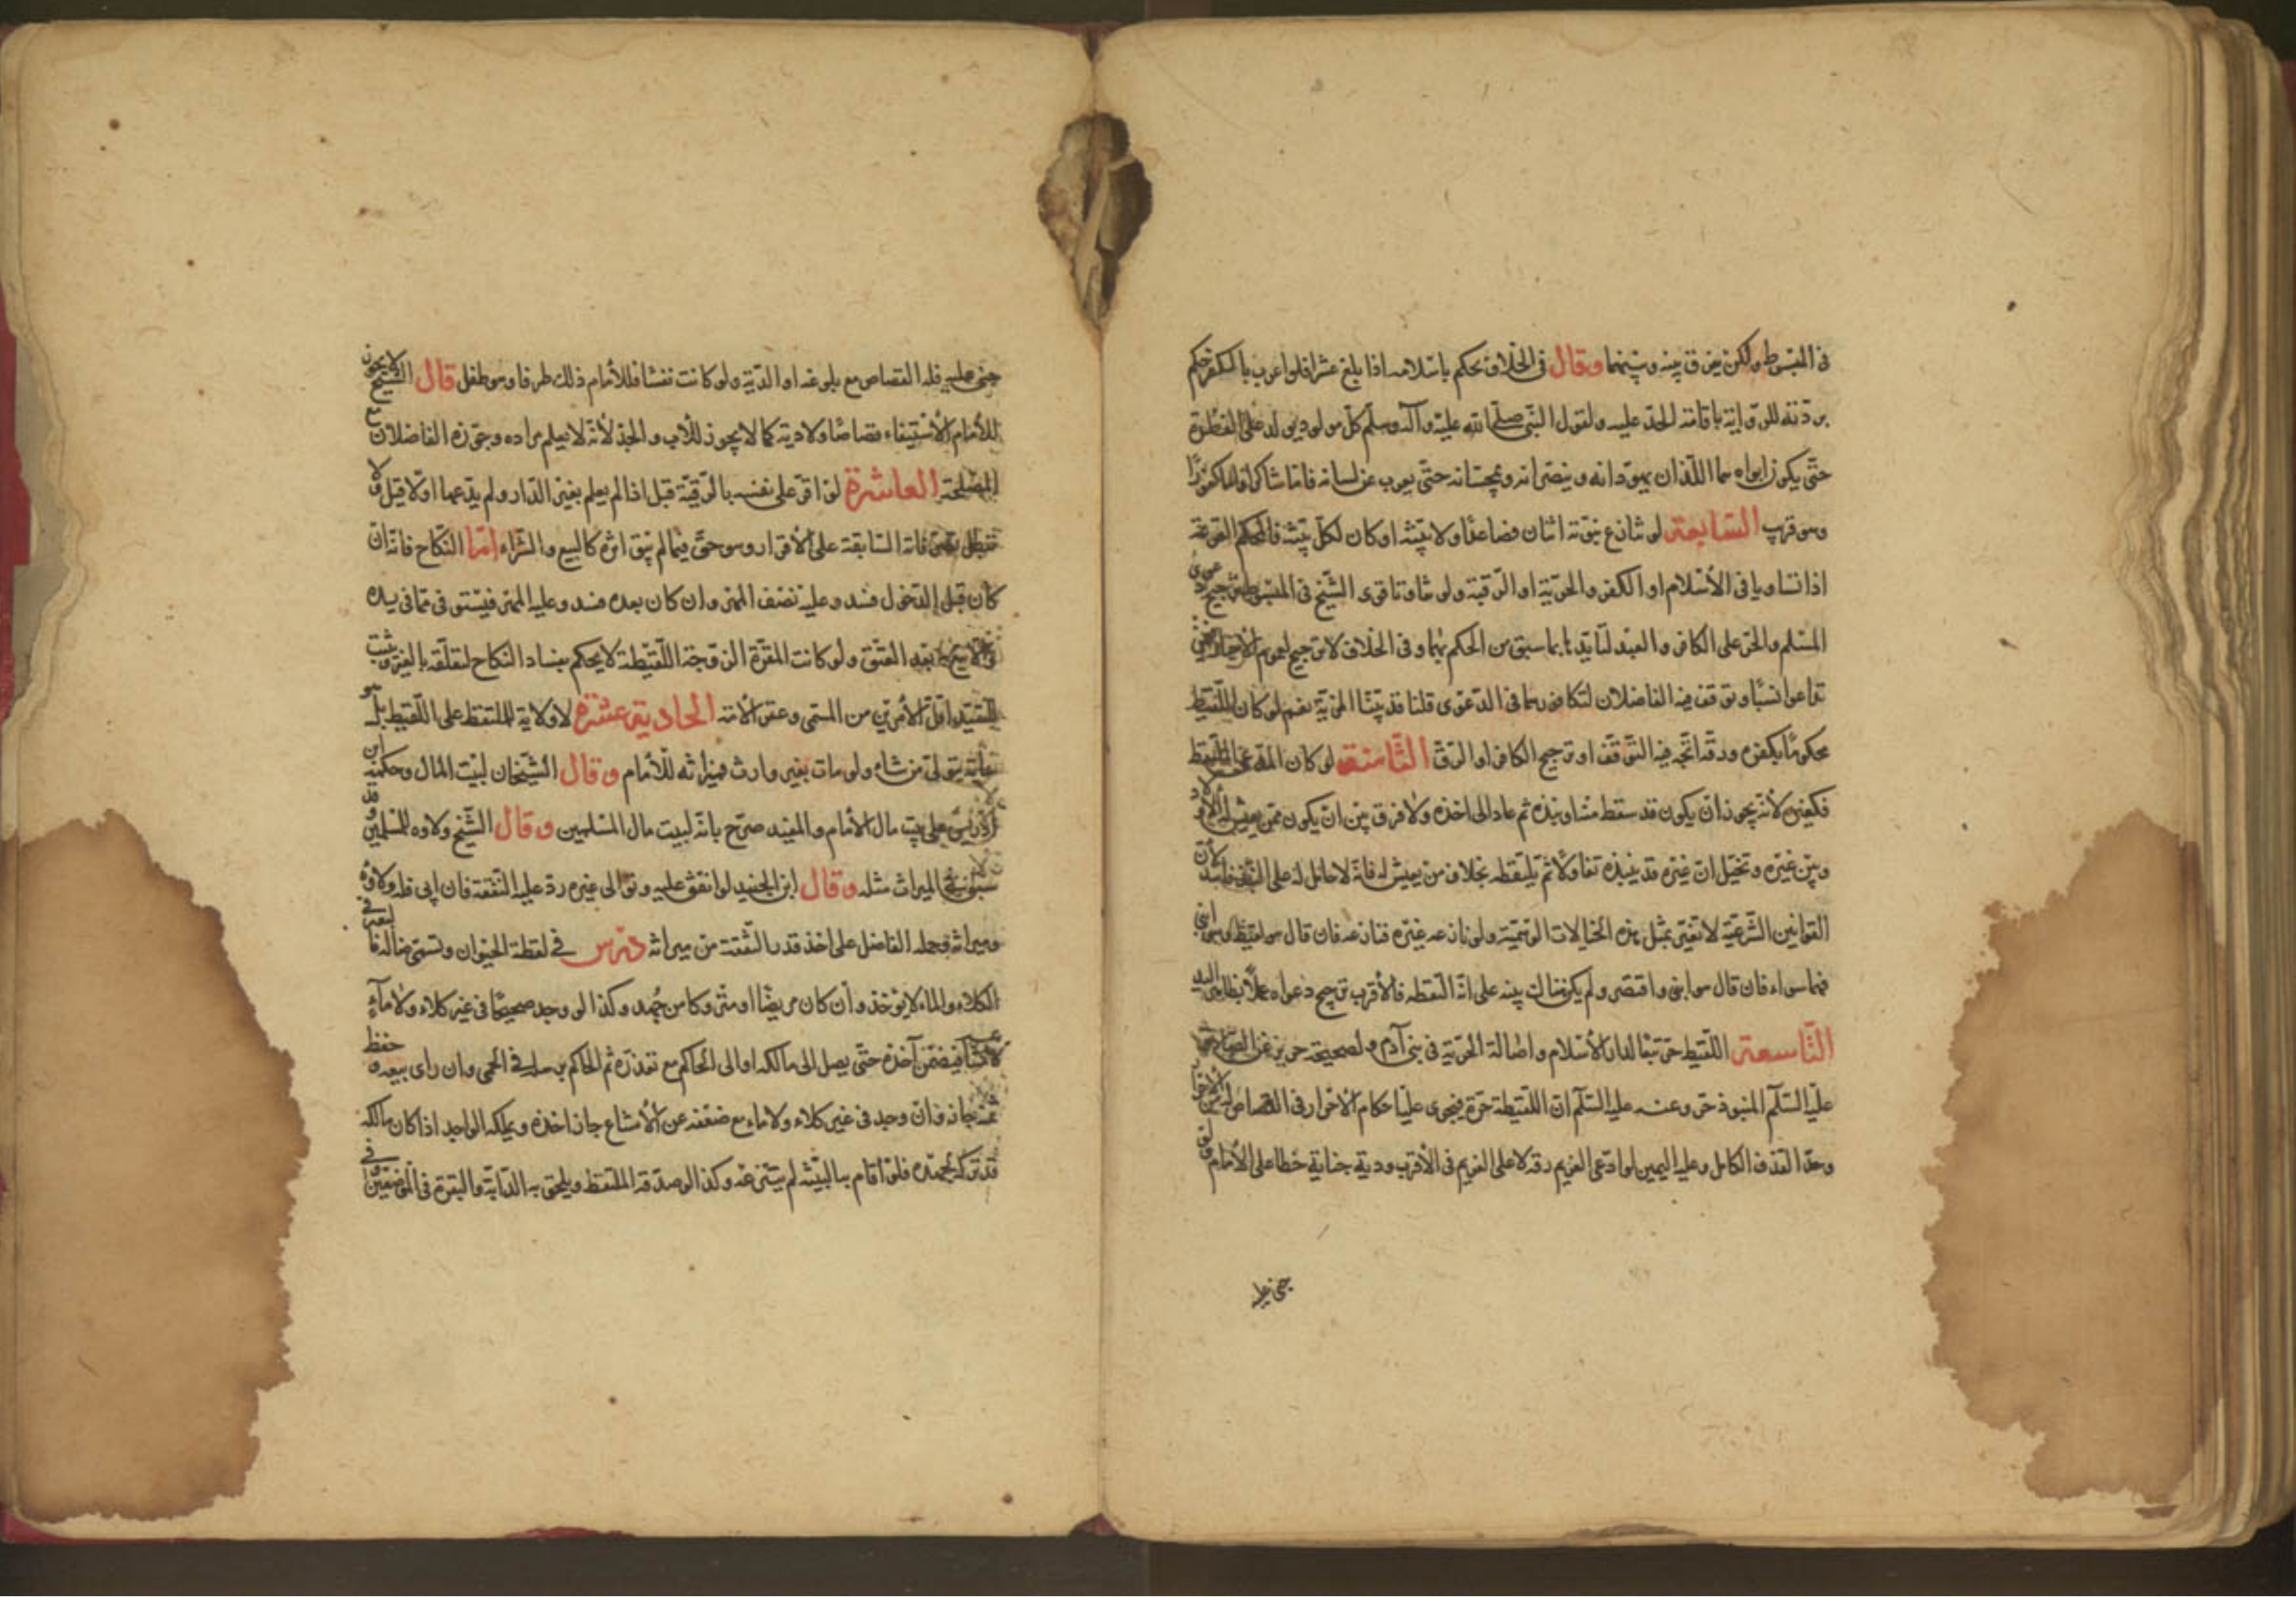 في المبسوط ولكن يفرق بينه وبينهما وقال في الخلاف يحكم باسلامه اذا بلغ عشرا فلو اعرب بالكفر حكم
بردته للرواية باقامة الحد عليه ولقول النبي صلى الله عليه وآله وسلم كل مولود يولد على الفطرة
حتى يكون ابواه هما اللذان يهودانه وينصرانه ويمجسانه حتى يعرب عنه لسانه فاما شاكرا واما كفورا
وهو قريب السابعة لو تنازع بنوته اثنان فصاعدا ولا بينة او كان لكل بينة فالحكم القرعة
اذا تساويا في الاسلام او الكفر والحرية او الرقية ولو تفاوتا قوى الشيخ في المبسوط ترجيح دعوى
المسلم والحر على الكافر والعبد لتأيدها بما سبق من الحكم بهما وفي الخلاف لا ترجيح لعموم الاخبار فيمن
تداعوا نسبا وتوقف فيه الفاضلان لتكافؤهما في الدعوى قلنا قد بينا المزية نعم لو كان اللقيط
محكوما بكفره ورقه اتجه فيه التوقف او ترجيح الكافر او الرق الثامنة لو كان المدعي هو الملتقط
فكغيره لأنه يجوز ان يكون قد سقط منه او نبذه ثم عاد الى اخذه ولا فرق بين ان يكون ممن يعيش له الأولاد
وبين غيره وتخيل ان غيره قد ينبذه تفاولا ثم يلتقطه بخلاف من يعيش له فانه لا حامل له على النبذ فاسد لأن
القوانين الشرعية لا تغير بمثل هذه الخيالات الوهمية ولو نازعه غيره فنازعه فان قال هو لقيط وهو ابني
فهما سواء فان قال هو ابني واقتصر ولم يكن هنالك بينة على انه التقطه فالأقرب ترجيح دعواه عملا بظاهر اليد
التاسعة اللقيط حر تبعا لدار الأسلام واصالة الحرية في بني آدم ولصحيحة حريز عن الصادق
عليه السلام المنبوذ حر وعنه عليه السلام ان اللقيطة حرة فيجري عليه احكام الأحرار في القصاص
وحد القذف الكامل وعليه اليمين لو ادعى الغريم رقه لا على الغريم في الأقرب ودية جنايته خطأ على الأمام ولو
جنى عليه
جنى عليه فله القصاص مع بلوغه او الدية ولو كانت نفسا فللأمام ذلك طرفا وهو طفل قال الشيخ لا يجوز
للأمام الأستيفاء قصاصا ولا دية كما لا يجوز للأب والجد لأنه لا يعلم مراده وجوزه الفاضلان مع
المصلحة العاشرة لو اقر على نفسه بالرقية قبل اذا لم يعلم بغير الدار ولم يدعها اولا قيل ولا
تبطل تصرفاته السابقة على الأقرار وهو حق فيما لم يبق اثره كالبيع والشراء اما النكاح فانه ان
كان قبل الدخول فسد وعليه نصف المهر وان كان بعده فسد وعليه المهر فيستوفى مما في يده
بعد العتق ولو كانت المقرة الزوجة اللقيطة لا يحكم بفساد النكاح لتعلقه بالغير ويثبت
للسيد اقل الأمرين من المسمى وعقر الأمة الحادية عشرة لا ولاية للملتقط على اللقيط بل هو
سائبة يتولى من شاء ولو مات بغير وارث فميراثه للأمام وقال الشيخان لبيت المال وحكى ابن
ادريس على بيت مال الأمام والمفيد صرح بانه لبيت مال المسلمين وقال الشيخ ولاؤه للمسلمين
الميراث مثله وقال ابن الجنيد لو انفق عليه وتوالى غيره رد عليه النفقة فان ابى فله ولاؤه
وميراثه وحمله الفاضل على اخذ قدر النفقة من ميراثه درس في لقطة الحيوان وتسمى ضالة
الكلاء والماء لا يؤخذ وان كان مريضا او متروكا من جهد وكذا لو وجد صحيحا في غير كلاء ولا ماء
فيضمن آخذه حتى يصل الى مالكه او الى الحاكم مع تعذره ثم الحاكم يرسله في الحمى وان راى بيعه وحفظ
ثمنه جاز وان وجد في غير كلاء ولا ماء مع ضعفه عن الأمتناع جاز اخذه ويملكه الواجد اذا كان مالكه
قد تركه لجهده فلو اقام به البينة لم ينتزعه وكذا لو صدقه الملتقط ويلحق به الدابة والبقرة في الموضعين وفي